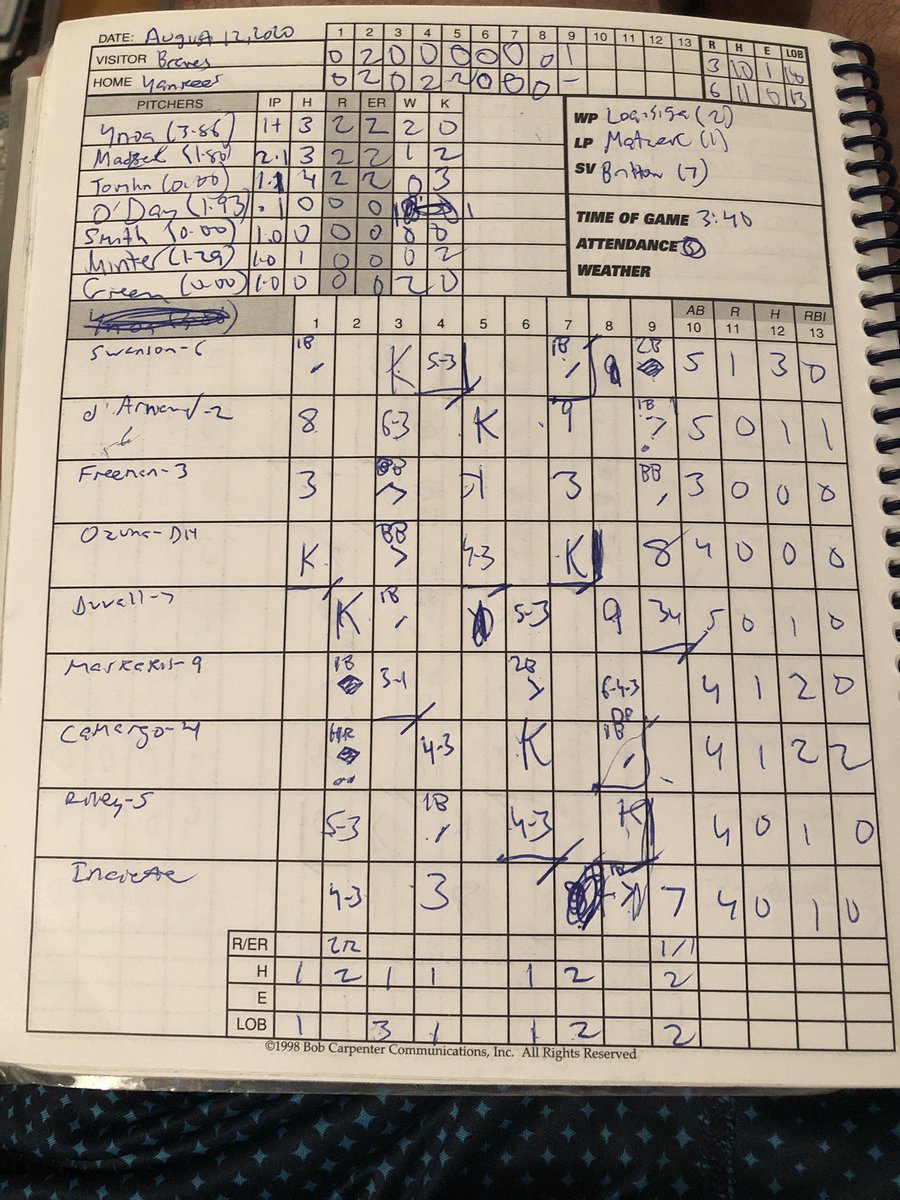 DATE: August 12, 2020 1 2 3 4 5 6 7 8 9 10 11 12 13 R H E LOB
VISITOR Braves 0 2 0 0 0 0 0 0 1 3 10 1 10
HOME Yankees 0 2 0 2 2 0 0 0 - 6 11 0 13
PITCHERS IP H R ER W K
Ynoa (3.86) 1+ 3 2 2 2 0
2.1 3 2 2 1 2
(0.00) 1.1 4 2 2 0 3
O'Day (1.93) .1 0 0 0
Smith (0.00) 1.0 0 0 0 0 0
Minter (1.29) 1.0 1 0 0 0 2
Green (0.00) 1.0 0 0 0 2 0
WP Loaisiga (2)
LP (1)
SV Britton (7)
TIME OF GAME 3:40
ATTENDANCE
WEATHER
1 2 3 4 5 6 7 8 9 AB 10 R 11 H 12 RBI 13
Swanson-6 1B K 5-3 1B 5 1 3 0
d'Arnaud-2 8 6-3 K 9 1B 5 0 1 1
Freeman-3 3 BB 3 BB 3 0 0 0
Ozuna-DH K BB 4-3 K 8 4 0 0 0
Duvall-7 K 1B 5-3 9 34 5 0 1 0
Markakis-9 1B 3-1 2B 6-4-3 DP 4 1 2 0
Camargo-4 HR 4-3 K 1B 4 1 2 2
Riley-5 5-3 1B 4-3 K 4 0 1 0
Inciarte 4-3 3 1B 7 4 0 1 0
R/ER 2/2 1/1
H 1 2 1 1 1 2 2
E
LOB 1 3 1 1 2 2
©1998 Bob Carpenter Communications, Inc. All Rights Reserved